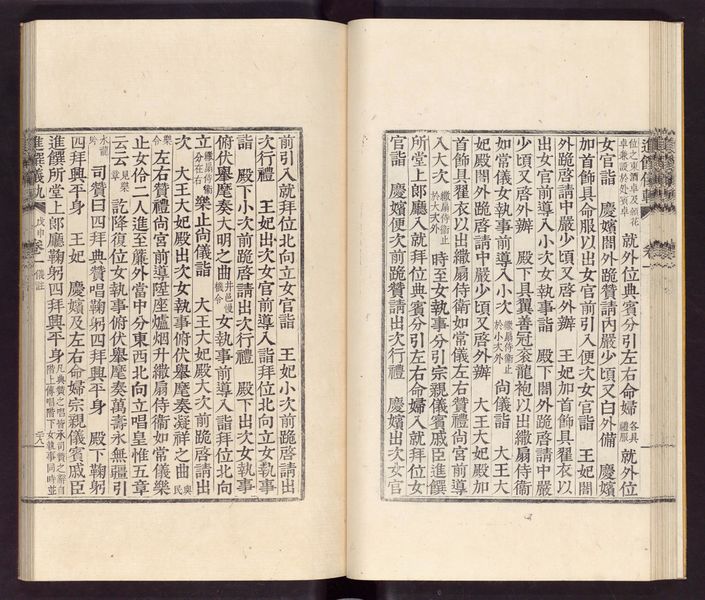 位之東酒卓及饌花
就外位典賓分引左右命婦各具禮服就外位
女官詣 慶嬪閤外跪贊請內嚴少頃又白外備 慶嬪
加首飾具命服以出女官前引入便次女官詣 王妃閤
外跪啓請中嚴少頃又啓外辦 王妃加首飾具翟衣以
出女官前導入小次女執事詣 殿下閤外跪啓請中嚴
少頃又啓外辦 殿下具翼善冠袞龍袍以出繖扇侍衛
如常儀女執事前導入小次繖扇侍衛止於小次外尙儀詣 大王大
妃殿閤外跪啓請中嚴少頃又啓外辦 大王大妃殿加
首飾具翟衣以出繖扇侍衛如常儀左右贊禮尙宮前導
入大次繖扇侍衛止於大次外時至女執事分引宗親儀賓戚臣進饌
所堂上郎廳入就拜位典賓分引左右命婦入就拜位女
官詣 慶嬪便次前跪贊請出次行禮 慶嬪出次女官
前引入就拜位北向立女官詣 王妃小次前跪啓請出
次行禮 王妃出次女官前導入詣拜位北向立女執事
詣 殿下小次前跪啓請出次行禮 殿下出次女執事
俯伏擧麾奏大明之曲井邑慢儀令女執事前導入詣拜位北向
立繖扇侍衛分在左右樂止尙儀詣 大王大妃殿大次前跪啓請出
次 大王大妃殿出次女執事俯伏擧麾奏凝祥之曲與民
樂令左右贊禮尙宮前導陞座爐烟升繖扇侍衛如常儀樂
止女伶二人進至簾外當中分東西北向立唱皇惟五章
云云見樂章訖降復位女執事俯伏擧麾奏萬壽永無疆引
司贊曰四拜典贊唱鞠躬四拜興平身 殿下鞠躬
四拜興平身 王妃 慶嬪及左右命婦宗親儀賓戚臣
進饌所堂上郎廳鞠躬四拜興平身凡典贊之唱皆承司贊之辭自階上傳唱階下女執事同時並
進饌儀軌 戊申 卷二 儀註 二八